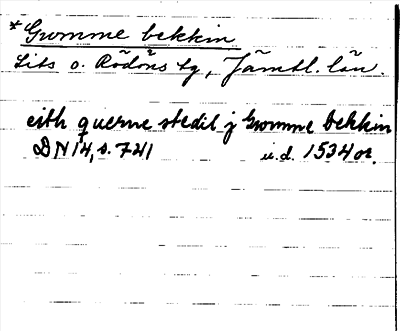 *Gwmme bekkin
Lits o. Rödöns tg, Jämtl. län.
eith querne stedit j Gwmme bekkin
DN 14, s. 721 u.d. 1534 or.